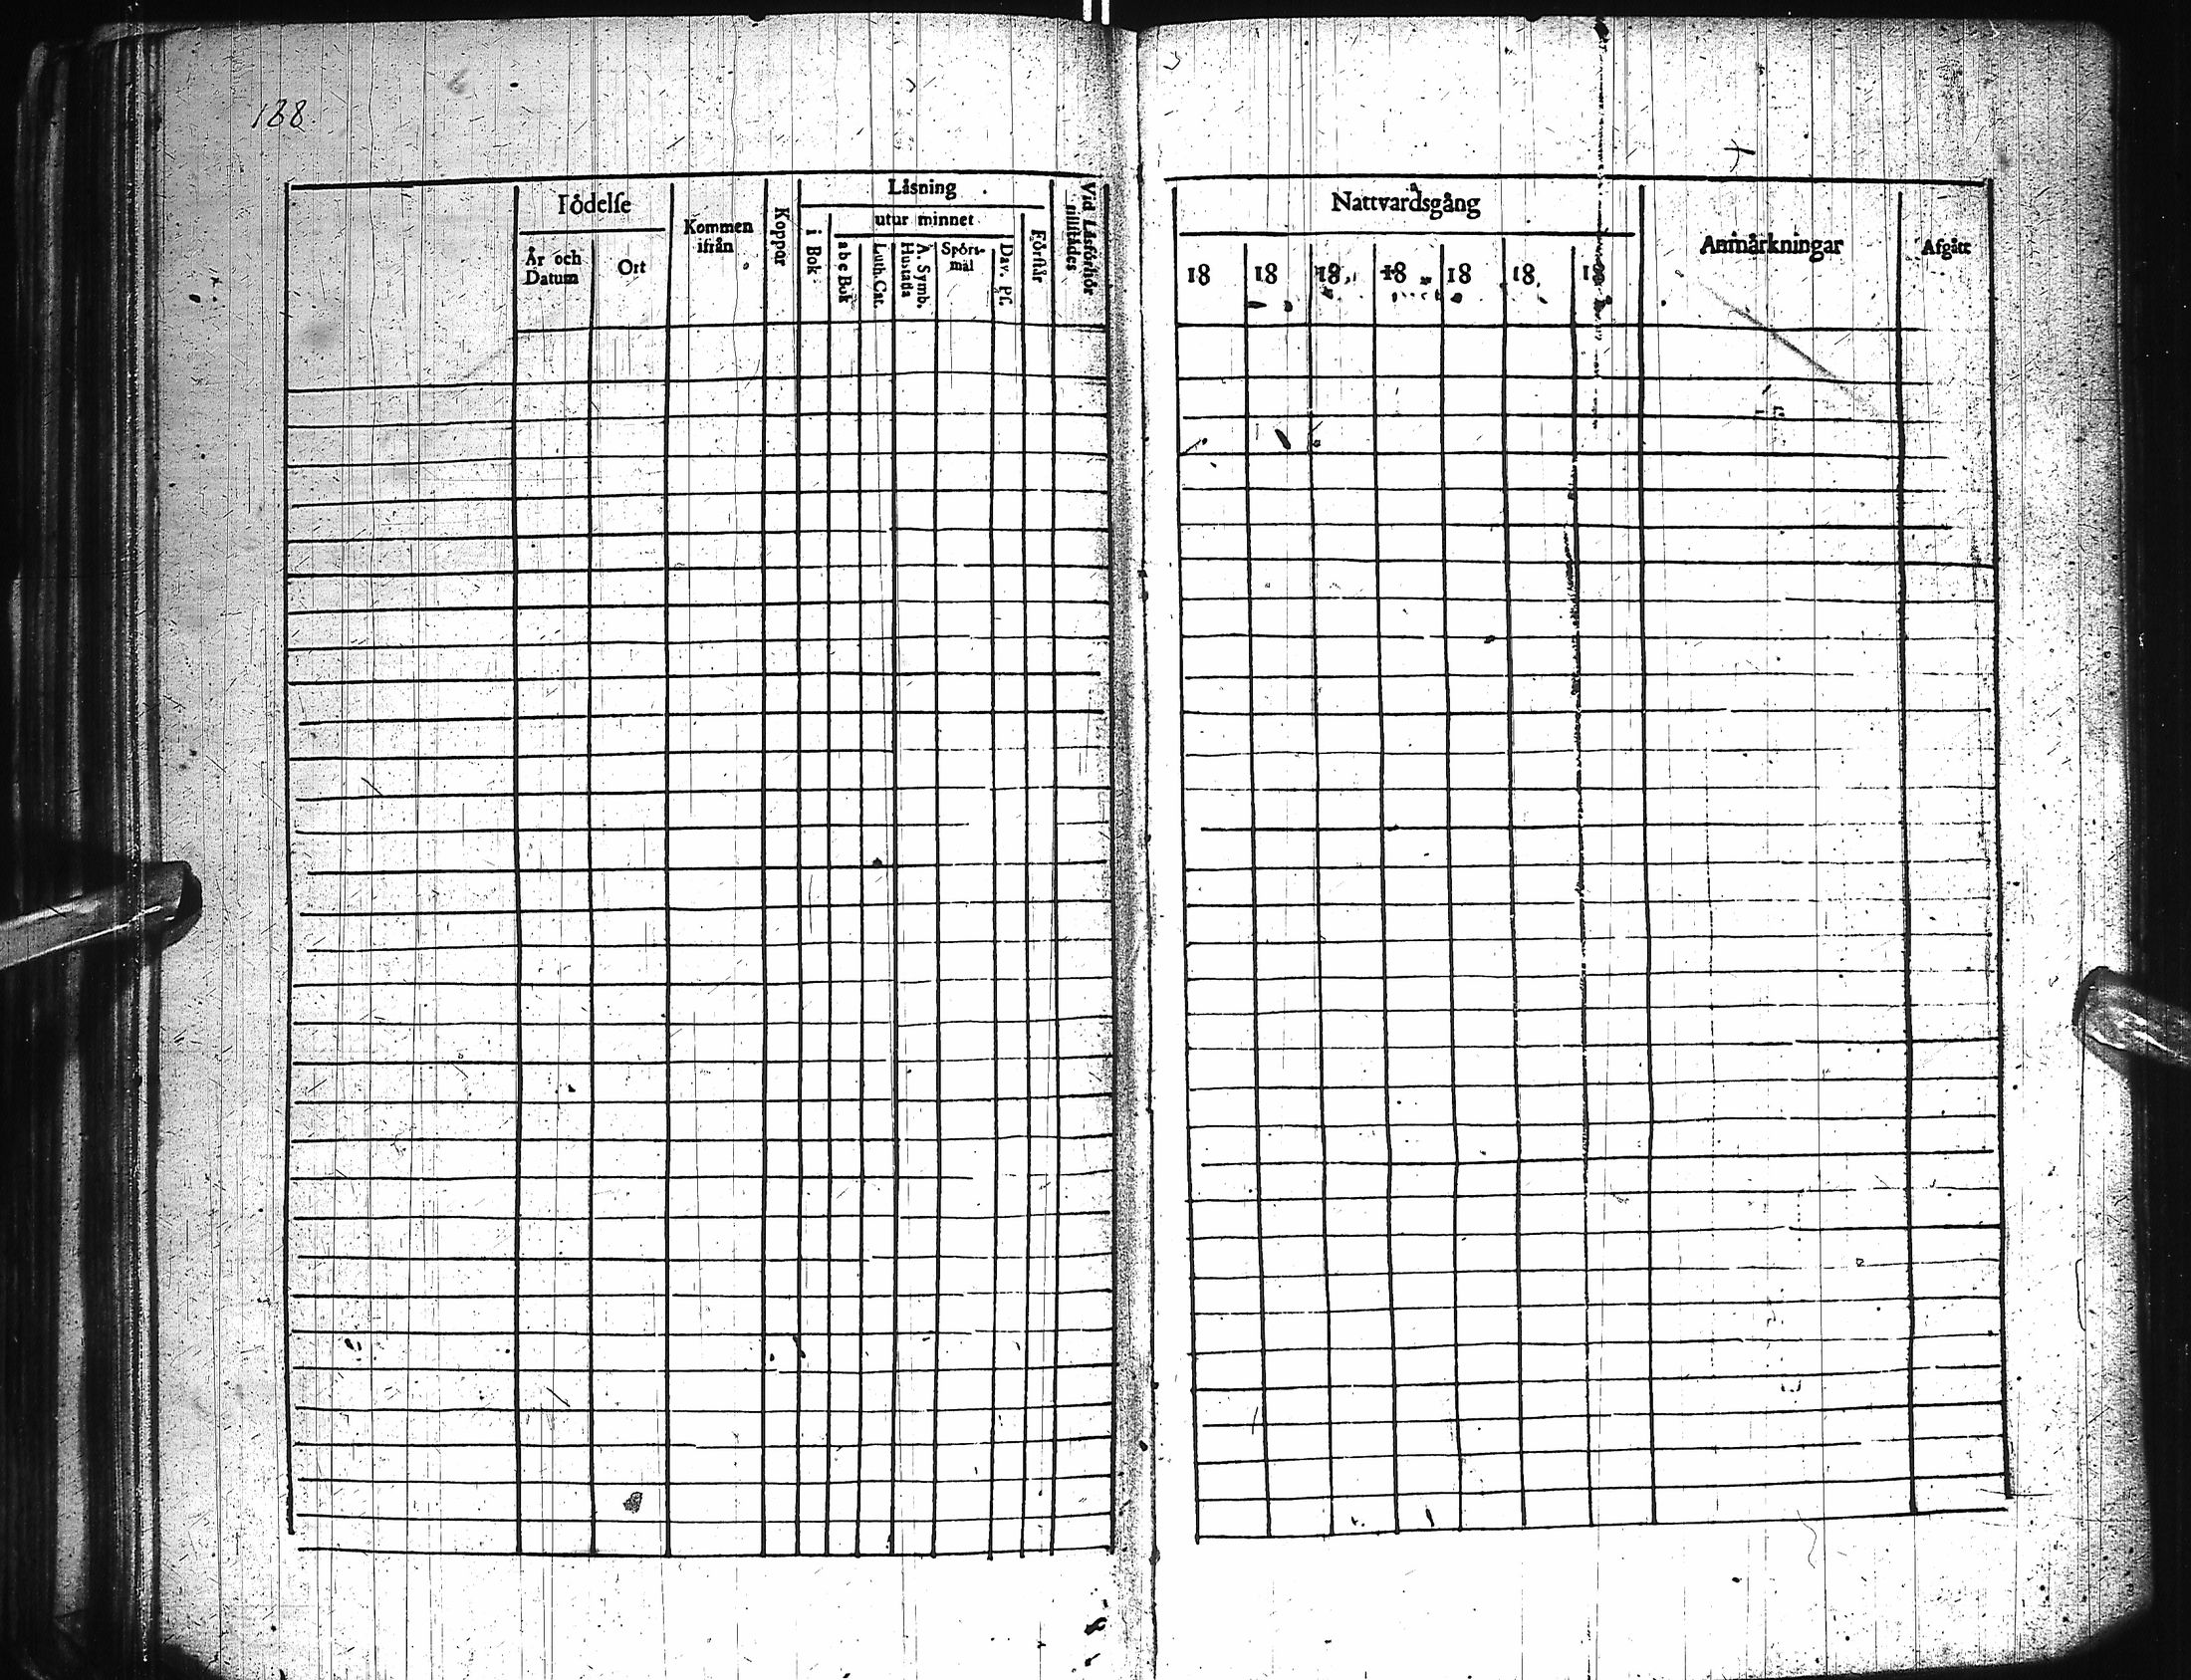 188.
Födelse
År och Datum
Ort
Kommen ifrån
Koppor
Läsning
i Bok
utur minnet
abc Bok
Luth. Cat.
A. Symb. Hustafla
Spörs-mål
Dav. Ps.
Förstår
Vid Läsförhör tillstädes
Nattvardsgång
18 18 18 18 18 18 18
Anmärkningar
Afgått